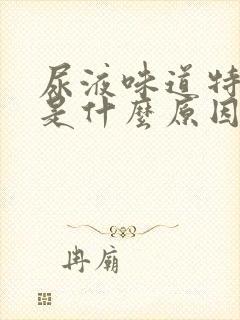 尿液味道特
是什麼原因
冉廟